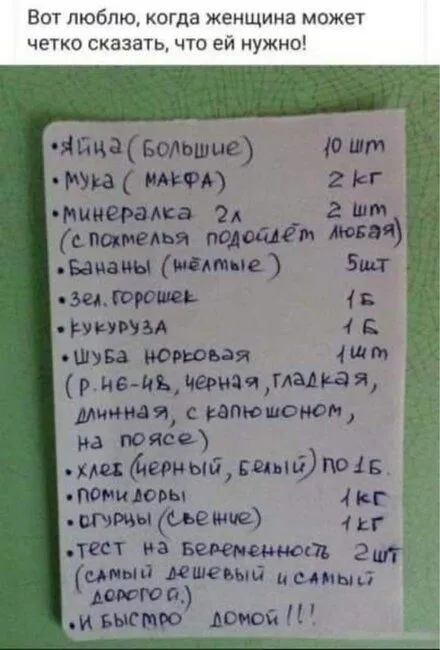 Вот люблю, когда женщина может
четко сказать, что ей нужно!
•Яйца (Большие) 10 шт
•Мука ( МАКФА) 2 кг
•Минералка 2л 2 шт
(с похмелья подойдёт любая)
•Бананы (жёлтые) 5шт
•Зел. горошек 1 Б
•Кукуруза 1 Б
•Шуба норковая 1 шт
(р.46-48, черная, гладкая,
длинная, с капюшоном,
на поясе)
•хлеб (черный, белый) по 1 Б.
•помидоры 1 кг
•огурцы (свежие) 1 кг
•тест на беременность 2 шт
(самый дешевый и самый
дорогой.)
•И быстро домой!!!